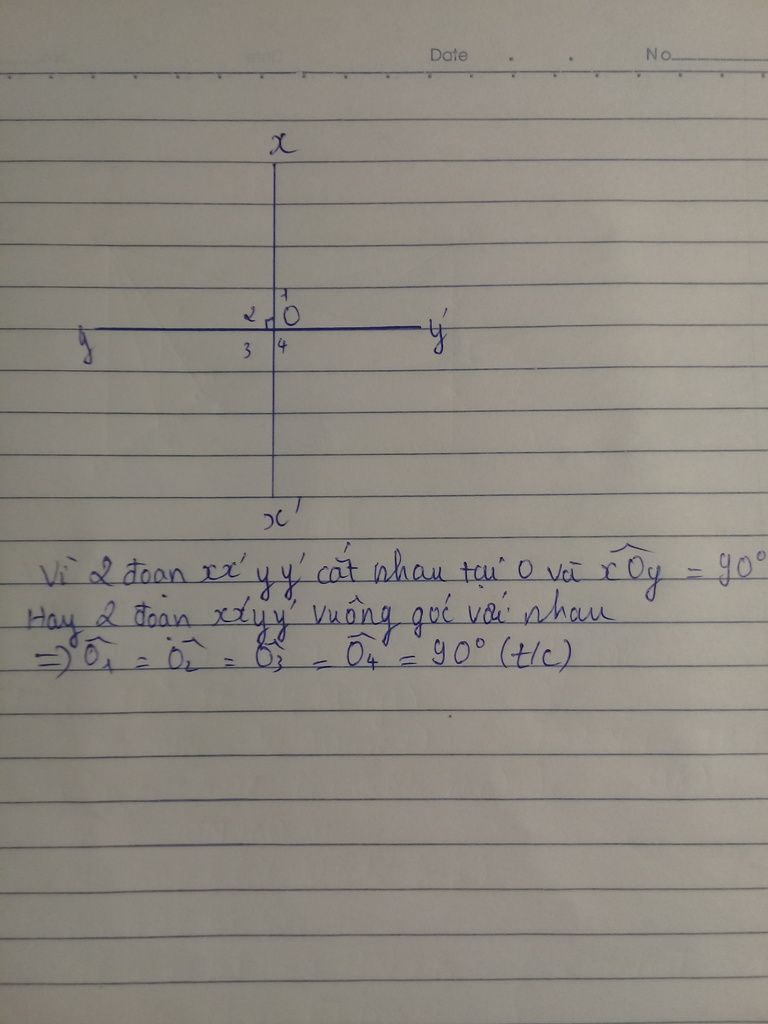 Date . . No
x
1
2 O
y y'
3 4
x'
Vì 2 đoạn xx' yy' cắt nhau tại O và xOy = 90°
Hay 2 đoạn xx'yy' vuông góc với nhau
=) Ô1 = Ô2 = Ô3 = Ô4 = 90° (t/c)